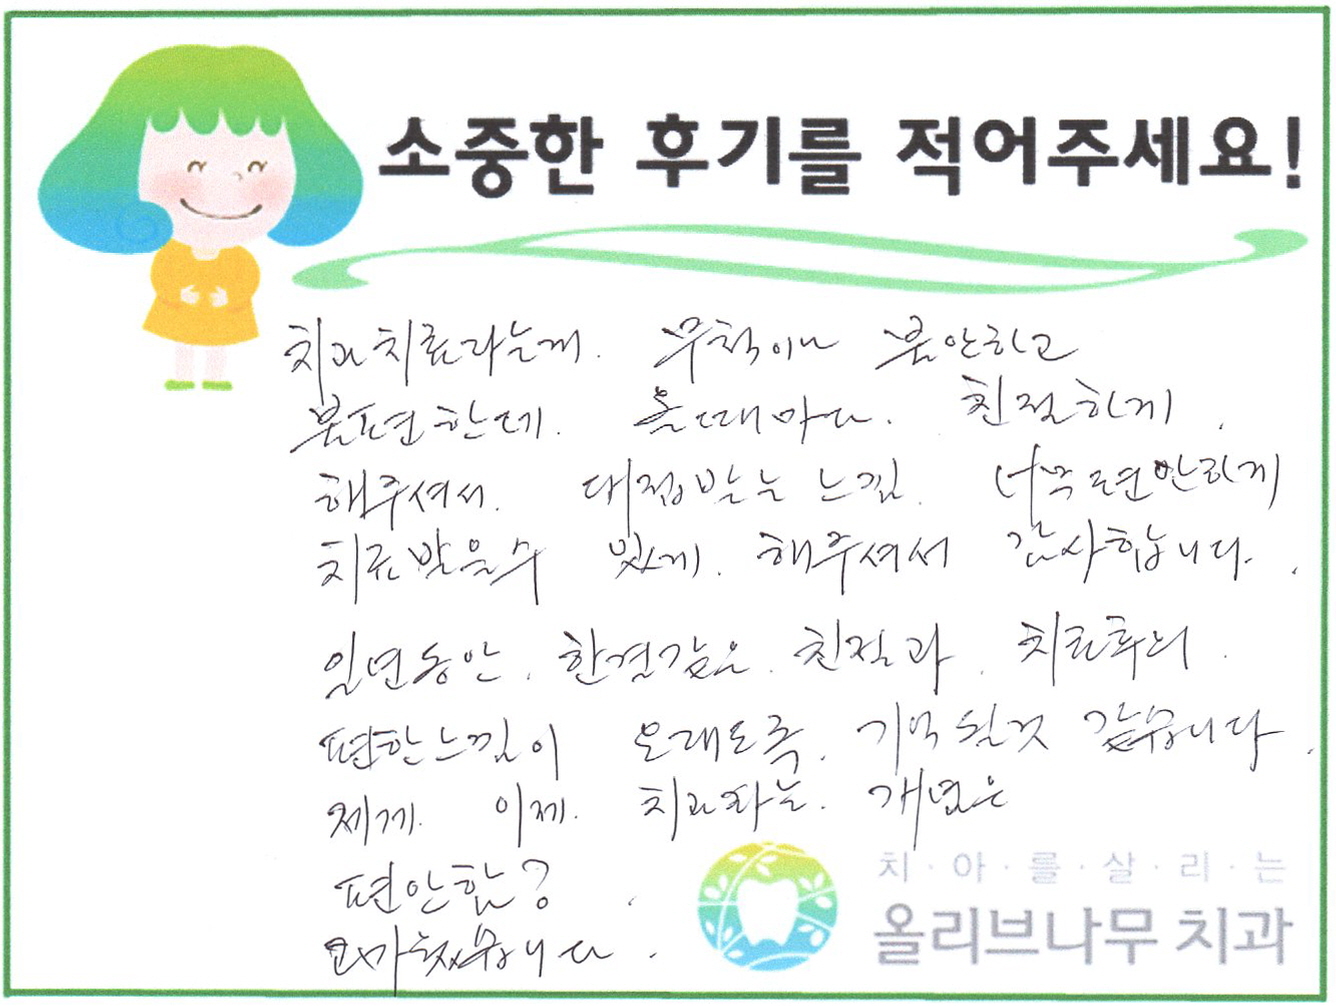 소중한 후기를 적어주세요!
치과치료라는게. 무척이나 불안하고
불편한데. 올때마다. 친절하게.
해주셔서. 대접받는 느낌. 너무 편안하게
치료받을수 있게. 해주셔서 감사합니다.
일년동안. 한결같은. 친절과. 치료후의.
편한느낌이 오래도록. 기억될것 같습니다.
제게. 이제. 치과라는. 개념은
편안함?.
고마웠습니다.
치·아·를·살·리·는
올리브나무 치과